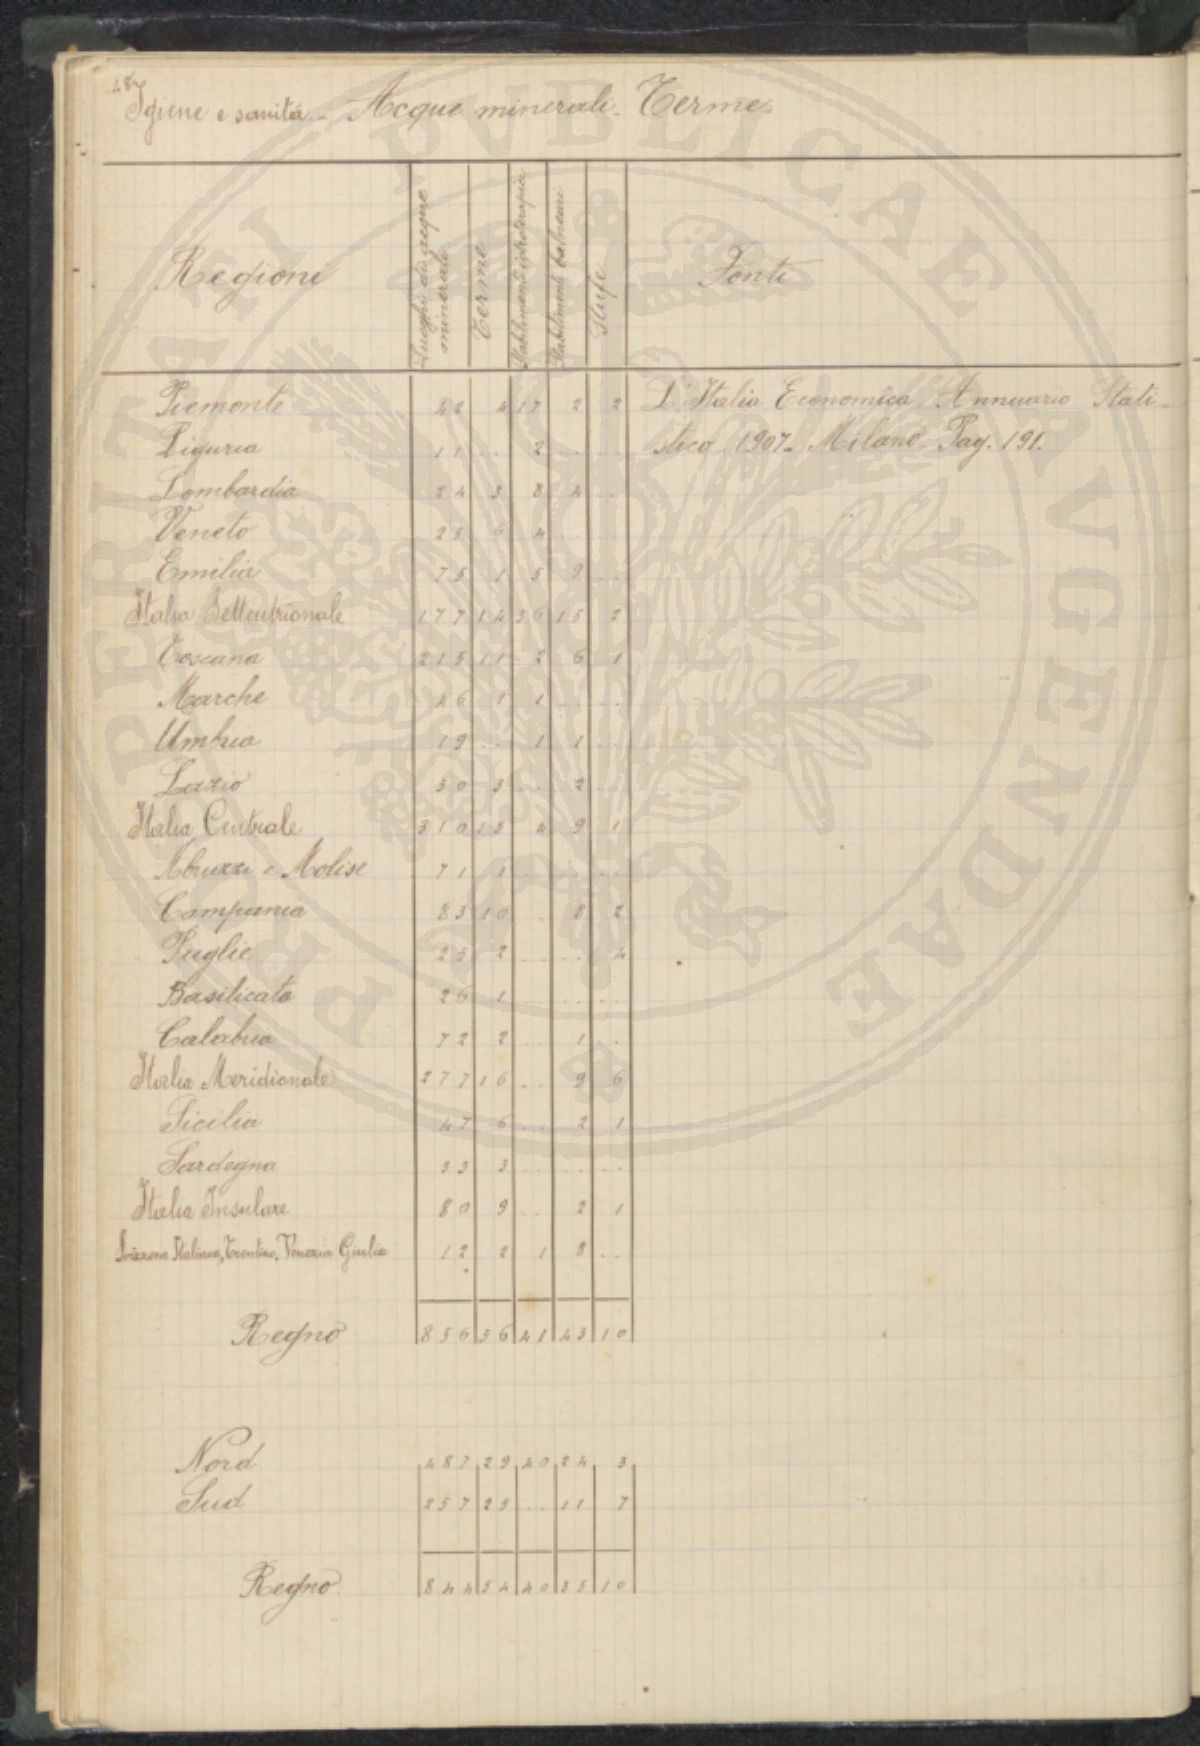 487
Igiene e sanità - Acque minerali - Terme -
Regioni Luoghi di acque minerali Terme Stabilimenti idroterapici Stabilimenti balneari Stufe Fonti
Piemonte 42 4 17 2 2 L'Italia Economica Annuario Stati-
Liguria 11 .. 2 .. .. stico 1907 - Milano - Pag. 191.
Lombardia 24 3 8 4 ..
Veneto 25 6 4 .. ..
Emilia 75 1 5 9 ..
Italia Settentrionale 177 14 36 15 2
Toscana 215 11 2 6 1
Marche 46 1 1 .. ..
Umbria 19 .. 1 1 ..
Lazio 30 3 .. 2 ..
Italia Centrale 310 15 4 9 1
Abruzzi e Molise 71 1 .. .. ..
Campania 83 10 .. 8 2
Puglie 25 2 .. .. 4
Basilicata 26 1 .. .. ..
Calabria 72 2 .. 1 ..
Italia Meridionale 277 16 .. 9 6
Sicilia 47 6 .. 2 1
Sardegna 33 3 .. .. ..
Italia Insulare 80 9 .. 2 1
Svizzera Italiana, Trentino, Venezia Giulia 12 2 1 8 ..
Regno 856 56 41 43 10
Nord 487 29 40 24 3
Sud 257 25 .. 11 7
Regno 844 54 40 35 10
PERITATI PUBLICAE AVGENDAE